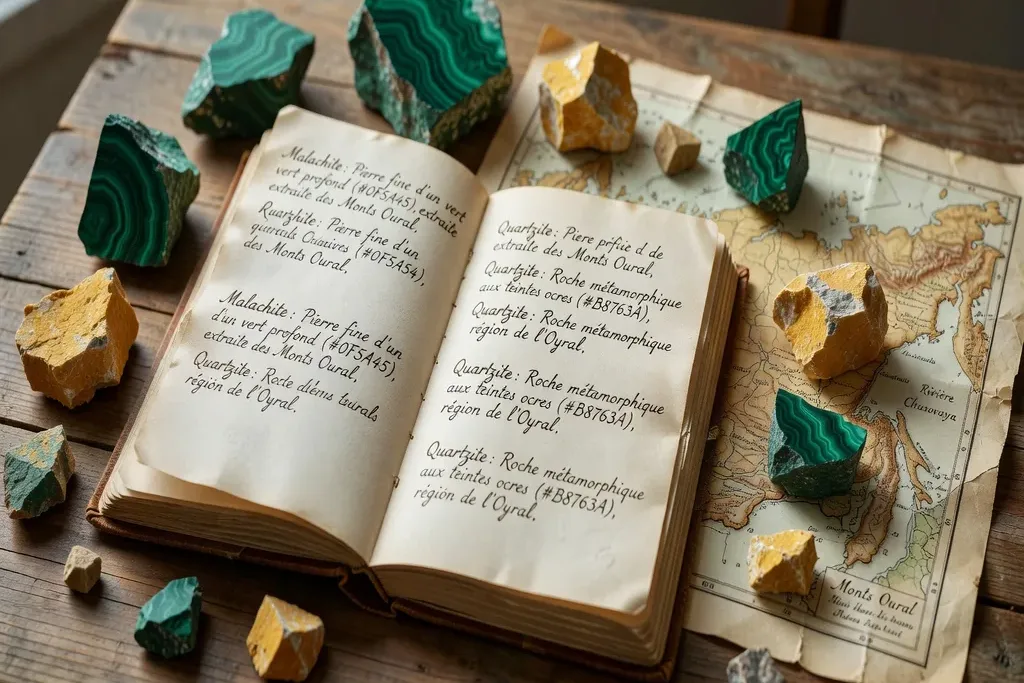 Malachite: Pierre fine d'un vert
profond (#0F5A45), extraite
extraite des Monts Oural,
Ruarzhite: Pierre fine d'un
(#0F5A54),
des Monts Oural,
Malachite: Pierre fine d'un
d'un vert profond (#0F5A45),
extraite des Monts Oural,
Quartzite: Rocte
région de l'Oyral.
Quartzite: Piere d de
extraite des Monts Oural,
Quartzite: Roche métamorphique
aux teintes ocres (#B8763A),
Quartzite: Roche métamorphique
région de l'Oyral.
Quartzite: Roche métamorphique
aux teintes ocres (#B8763A),
région de l'Oyral.
Quartzite: Roche métamorphique
aux teintes ocres (#B8763A),
région de l'Oyral.
Rivière
Chusovaya
Monts Oural